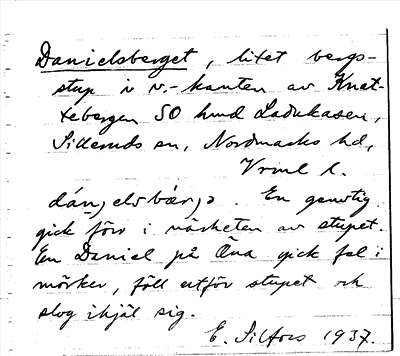 Danielsberget, litet bergs-
stup i v.-kanten av Knat-
tebergen SO hmd Ladukasen,
Sillerud sn, Nordmarks hd,
Vrml l.
En genstig
gick förr i närheten av stupet.
En Daniel på Öna gick fel i
mörker, föll utför stupet och
slog ihjäl sig.
E. Silfors 1937.